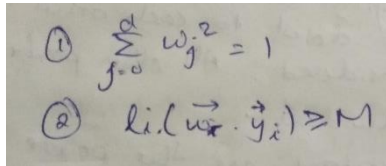 ① \sum_{j=0}^{d} w_j^2 = 1
② li.(\vec{w}. \vec{y}_i) ≥ M